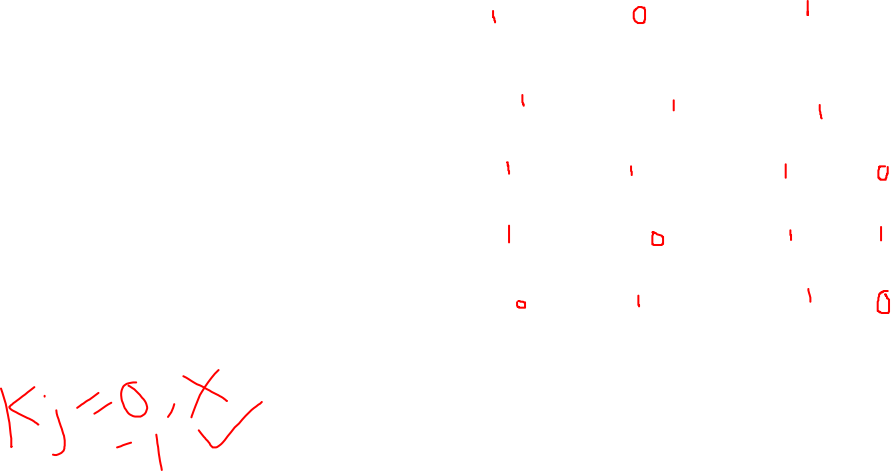 1 0 1
1 1 1
1 1 1 0
1 0 1 1
0 1 1 0
Kj=0, x
-1 ✓